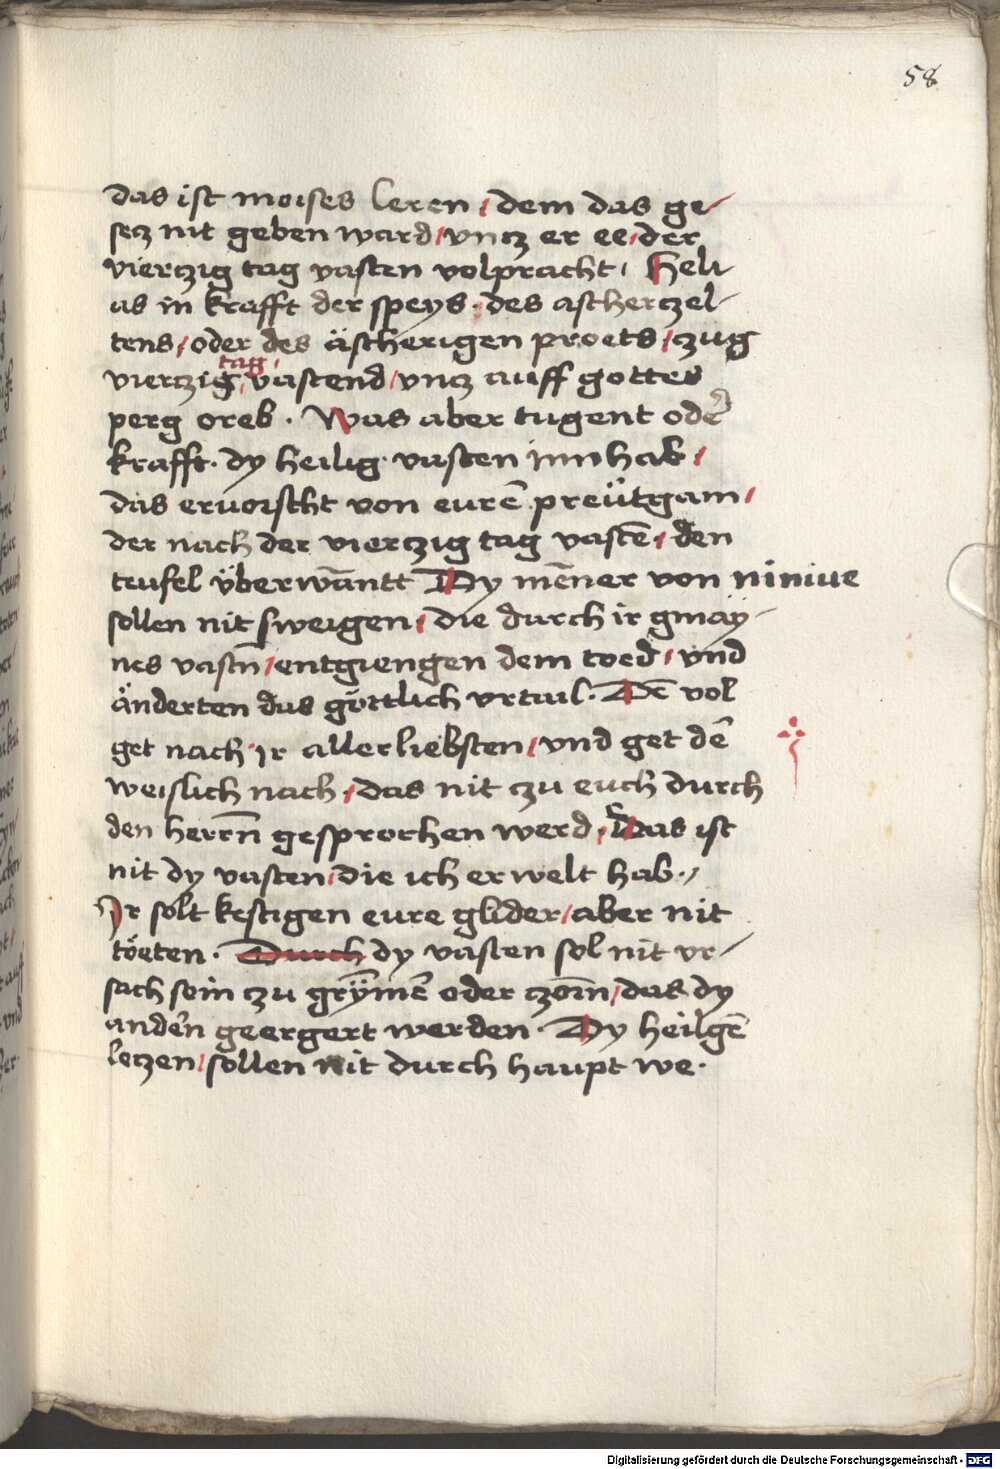 58
das ist moises leren / dem das ge-
secz nit geben ward / vncz er ee / der
vierczig tag vasten volpracht / Heli
as in krafft der speys · des aschertzel-
tens / oder des äscherigen proets / czug
tag /
vierczig / vastend / vncz auff gottes
perg oreb · Was aber tugent oder
krafft · dy heilig · vasten innhab /
das ervorscht von eurē preütgam /
der nach der vierczig tag vastē / den
teufel überwāntt Dy mēner von niniue
sollen nit sweigen / die durch ir gmay-
nes vastn̄ / entgiengen dem toed / vnd
änderten das göttlich vrtail · Dē vol
get nach ir allerliebsten / vnd get dē
weislich nach / das nit czu euch durch
den herrn̄ gesprochen werd / Das ist
nit dy vasten / die ich erwelt hab ·/
Ir solt kestigen eure glider / aber nit
töeten · Durch dy vasten sol nit vr-
sach sein czu grym̄ē oder czorn̄ / das dy
andern geergert werden · Dy heilgē
leczen / sollen nit durch haupt we ·
Digitalisierung gefördert durch die Deutsche Forschungsgemeinschaft - DFG